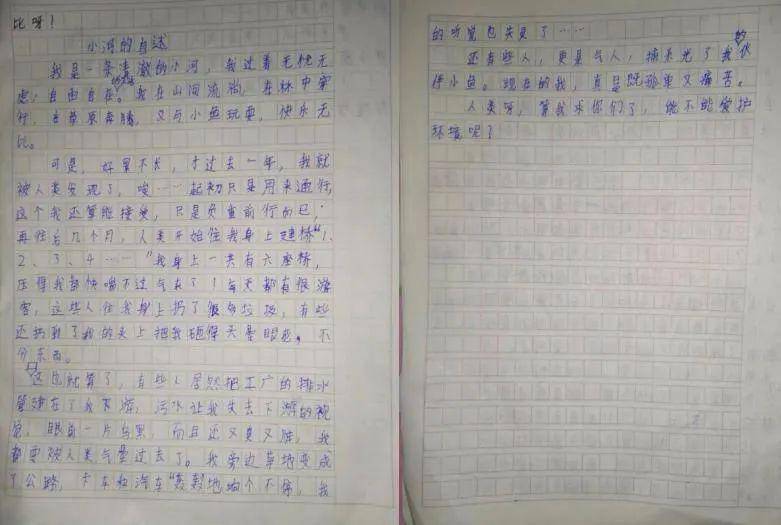 比呀！
小河的自述
我是一条清澈的小河，我过着无忧无
虑，自由自在的生活。我在山间流淌，在林中穿
行，在草原奔腾，又与小鱼玩耍，快乐无
比。
可是，好景不长，才过去一年，我就
被人类发现了，唉……起初只是用来通行，
这个我还算能接受，只是负重前行而已，
再往后几个月，人类开始往我身上建桥"1、
2、3、4……"我身上一共有六座桥，
压得我都快喘不过气来了！每天都有很游
客，这些人往我身上扔了很多垃圾，有些
还扔到了我的头上把我砸得天昏眼花，不
分东西。
这也就算了，有些人居然把工厂的排水
管建在了我下游，污水让我失去下游的视
觉，眼前一片乌黑，而且还又臭又脏，我
都要被人类气晕过去了。我旁边草地变成
了公路，卡车和汽车"轰轰"地响个不停，我
的听觉也失灵了……
还有些人，更是气人，捕杀光了我的伙
伴小鱼。现在的我，真是既孤单又痛苦。
人类呀，算我求你们了，能不能爱护
环境呢？